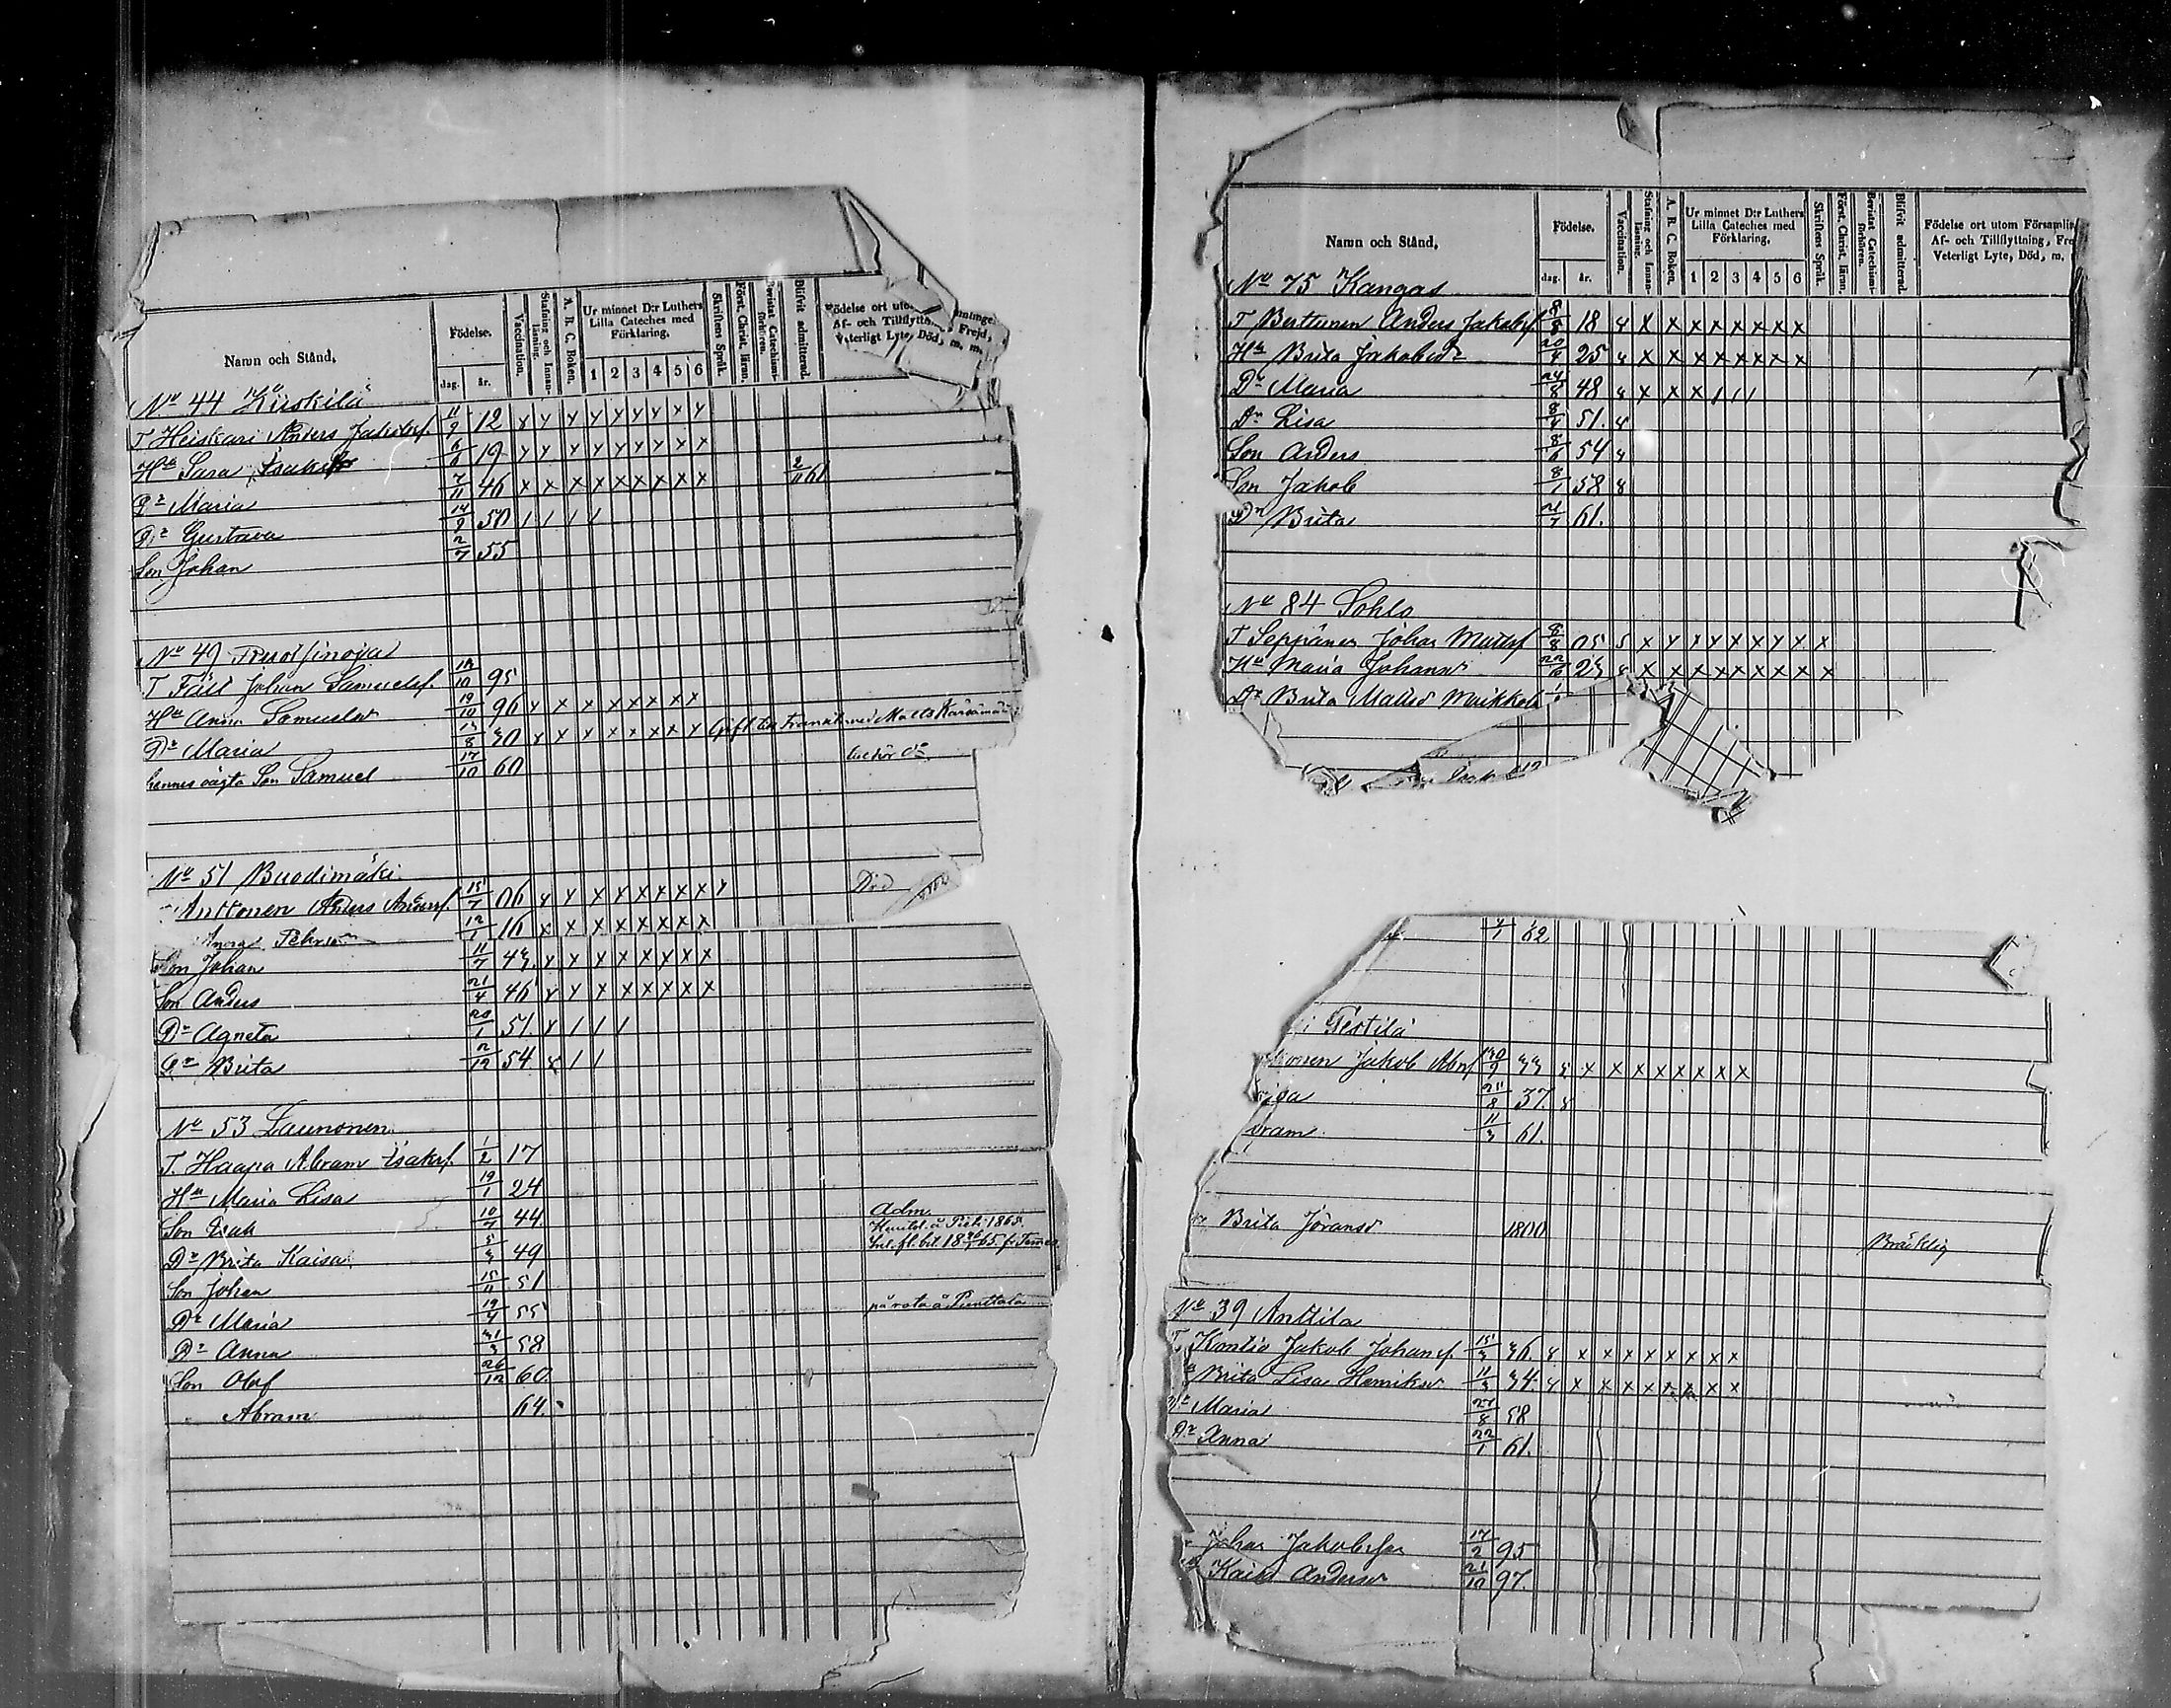 Namn och Stånd,
Födelse.
dag. år.
Vaccination.
Stafning och Innanläsning.
A. B. C. Boken.
Ur minnet D:r Luthers Lilla Cateches med Förklaring,
1 2 3 4 5 6
Skriftens Språk.
Först. Christ. läran.
Bevistat Catechismiförhören.
Blifvit admitterad.
Födelse ort uto
Af- och Tillflyttn
Veterligt Lyte, Död, m. m.
Frejd,
No 44 Kiiskilä
T Heiskari Anders Jakobsf. 11/9 12 x x x x x x x x x
Hu Sara 6/6 19 x x x x x x x x x
Dr Maria 7/11 46 x x x x x x x x x 2/11 61
Dr Gustava 14/9 50 / / / /
Son Johan 2/7 55
No 49
T Fält Johan Samuelsf. 10 95
Hu Anna Samuelsdr 19/10 96 x x x x x x x x
Dr Maria 8 30 x x x x x x x x x Gift
hennes oägta Son Samuel 17/10 60
No 51 Buodimäki
Anttonen Anders Andersf. 15/7 06 x x x x x x x x x Död
Anna Pehrsdr 12/1 16 x x x x x x x x
Son Johan 11/7 43. x x x x x x x x
Son Anders 21/4 46 x x x x x x x x
Dr Agneta 20/1 51. x / / /
Dr Brita 2/12 54 x / /
No 53 Launonen.
T. Haapa Abram Isaksf. 1/2 17
Hu Maria Lisa 19/1 24
Son Isak 10/7 44 Adm.
Dr Brita Kaisa 5/3 49
Son Johan 15/11 51
Dr Maria 19/4 55 på rota å Punttala
Dr Anna 31/3 58
Son Olof 26/12 60
Abram 64.
Namn och Stånd,
Födelse.
dag. år.
Vaccination.
Stafning och Innanläsning.
A. B. C. Boken.
Ur minnet D:r Luthers Lilla Cateches med Förklaring,
1 2 3 4 5 6
Skriftens Språk.
Först. Christ. läran.
Bevistat Catechismiförhören.
Blifvit admitterad.
Födelse ort utom Församlin
Af- och Tillflyttning, Fre
Veterligt Lyte, Död, m.
No 75 Kangas
T Berttunen Anders Jakobsf. 8/8 18 x x x x x x x x
Hu Brita Jakobsdr 20/4 25 x x x x x x x x
Dr Maria 24/8 48 x x x / / /
Dr Lisa 8/4 51.
Son Anders 8/6 54
Son Jakob 8/1 58
Dr Brita 21/7 61.
No 84 Sohlo
T Seppänen Johan Mattsf 8/8 05 x x x x x x x x x
Hu Maria Johansdr 23 x x x x x x x x x
Dr Brita
1 62
Pestilä
onen Jakob Abrf 30/9 33 x x x x x x x x
isa 8 37.
bram 11/3 61.
Brita Jöransdr 1800 Bräcklig
No 39 Anttila
T. Kontio Jakob Johansf 15/3 36. x x x x x x x x
Brita Lisa Henriksdr 11/3 34. x x x x x x x x
Dr Maria 27/8 58
Dr Anna 22/1 61.
Johan Jakobsson 17/2 95
Kaisa Andersdr 21/10 97.